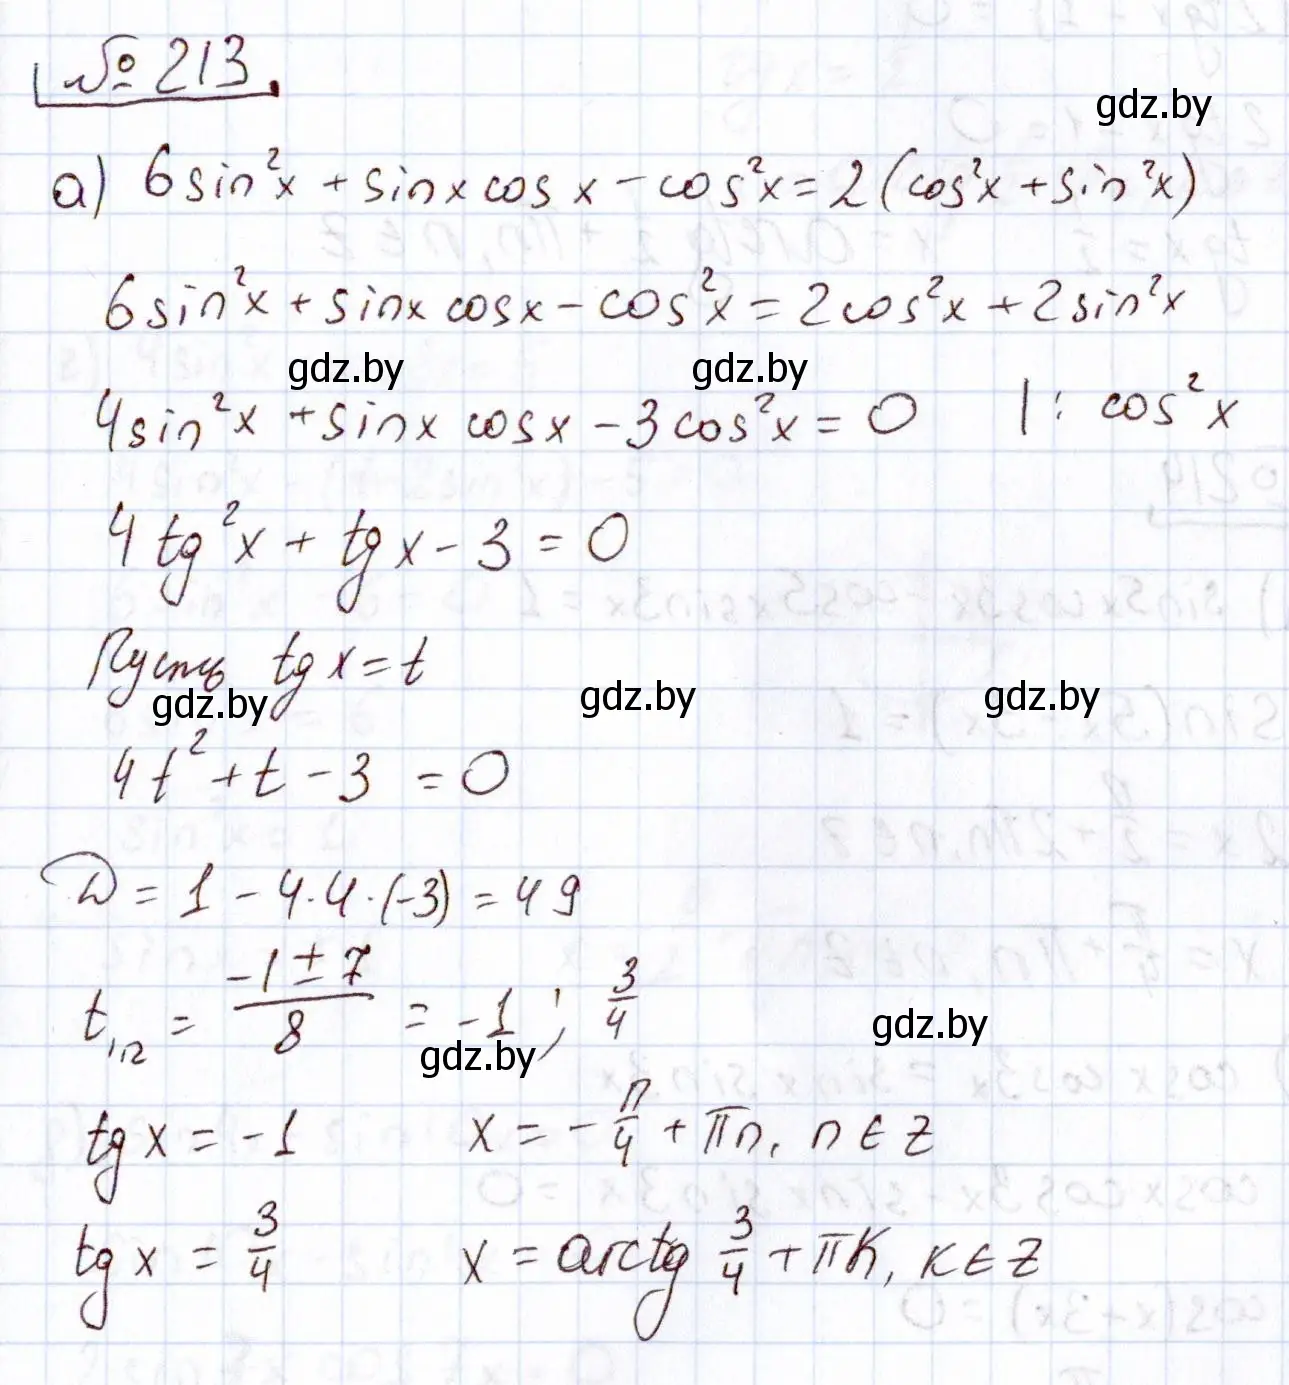 № 213.
gdz.by
а) 6sin²x + sinx cos x - cos²x = 2(cos²x + sin²x)
6sin²x + sinx cosx - cos²x = 2cos²x + 2sin²x
gdz.by gdz.by
4sin²x + sinx cosx - 3cos²x = 0 |: cos²x
4tg²x + tgx - 3 = 0
Пусть tgx = t
gdz.by gdz.by gdz.by
4t² + t - 3 = 0
D = 1 - 4·4·(-3) = 49
t₁,₂ = (-1 ± 7)/8 = -1 ; 3/4
gdz.by gdz.by
tgx = -1 x = -π/4 + πn, n ∈ Z
tgx = 3/4 x = arctg 3/4 + πK, K ∈ Z